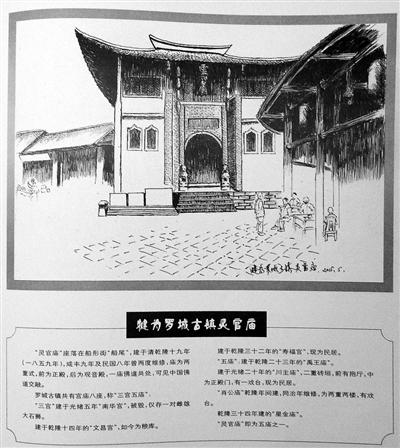 灵官庙
犍为罗城古镇灵官庙 2015.5.
犍为罗城古镇灵官庙
“灵官庙”座落在船形街“船尾”，建于清乾隆十九年
（一八五九年），咸丰九年及民国八年曾两度维修，庙为两
重式，前为正殿，后为观音殿，一庙佛道共处，可见中国佛
道交融。
罗城古镇共有宫庙八座，称“三宫五庙”。
“三宫”建于光绪五年“南华宫”，被毁，仅存一对雌雄
大石狮。
建于乾隆十四年的“文昌宫”，如今为粮库。
建于乾隆三十二年的“寿福宫”，现为民居。
“五庙”：建于乾隆二十三年的“禹王庙”。
建于光绪二十年的“川主庙”，二重砖垣，前有抱厅，中
为正殿门，有一戏台，现为民居。
“肖公庙”乾隆年间建，同治年维修，为两重两楼，有戏
台。
乾隆三十四年建的“星金庙”。
“灵官庙”即为五庙之一。